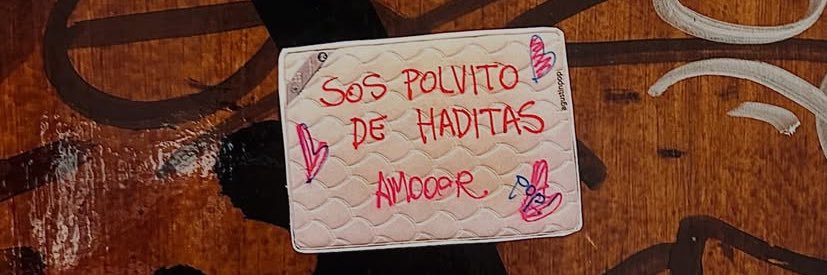 SOS POLVITO
DE HADITAS
AMOOOR.